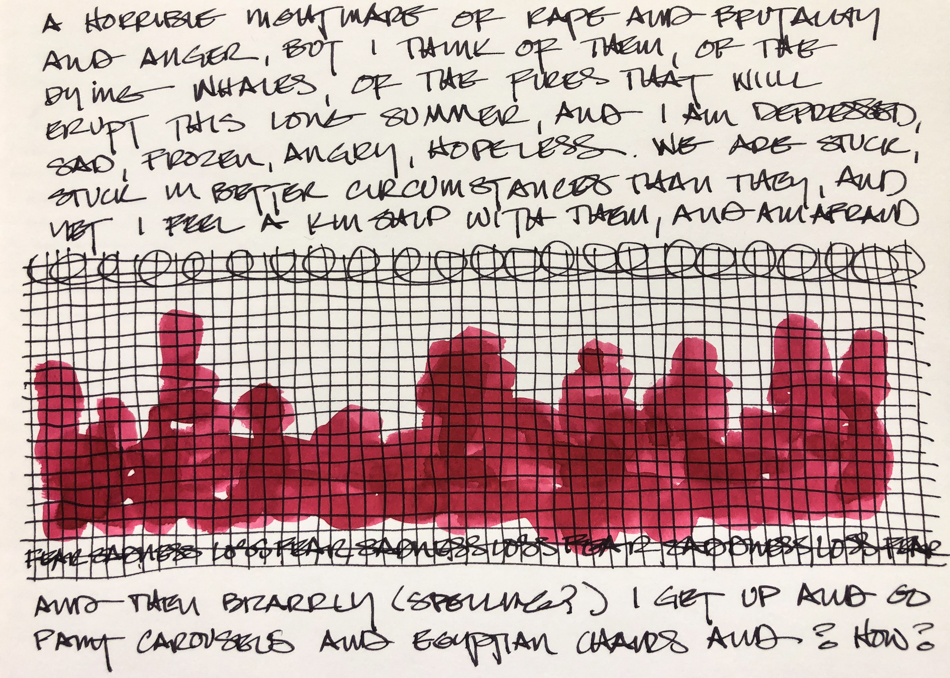 A HORRIBLE NIGHTMARE OF RAPE AND BRUTALITY
AND ANGER, BUT I THINK OF THEM, OF THE
DYING WHALES, OF THE FIRES THAT WILL
ERUPT THIS LONG SUMMER, AND I AM DEPRESSED,
SAD, FROZEN, ANGRY, HOPELESS. WE ARE STUCK,
STUCK IN BETTER CIRCUMSTANCES THAN THEY, AND
YET I FEEL A KINSHIP WITH THEM, AND AM AFRAID
FEAR SADNESS LOSS FEAR SADNESS LOSS FEAR SADDNESS LOSS FEAR
AND THEN BIZARRLY (SPELLING?) I GET UP AND GO
PAINT CAROUSELS AND EGYPTIAN CHAIRS AND ? HOW?